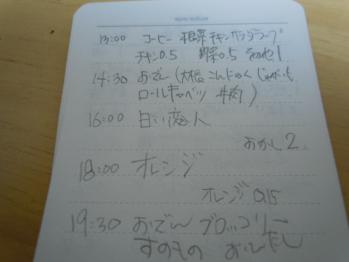 13:00 コーヒー 根菜チキンサラダラップ
チキン0.5 野菜0.5 1
14:30 おでん(大根 こんにゃく じゃがいも
ロールキャベツ 牛肉)
16:00 白い恋人
おかし2
18:00 オレンジ
オレンジ 0.15
19:30 おでん ブロッコリー
すのもの おひたし